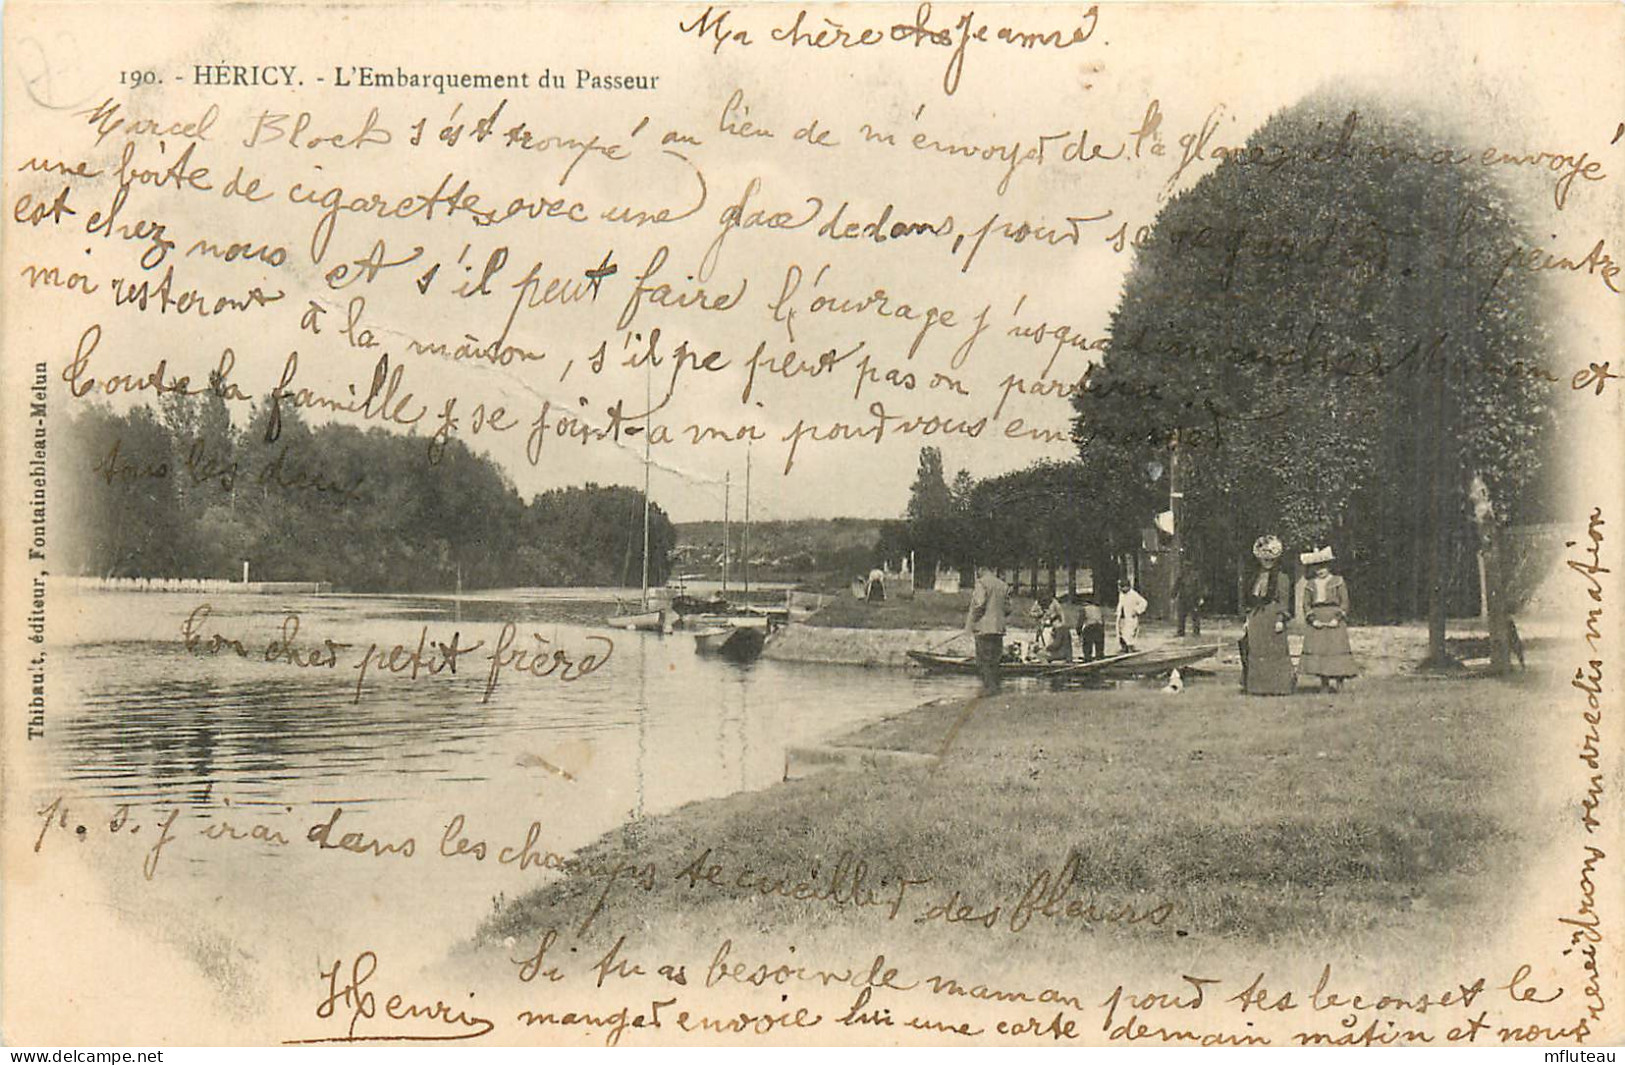 Ma chère che Jeanne.
190. - HÉRICY. - L'Embarquement du Passeur
Marcel Bloch s'ést trompé au lieu de m'envoyer de la glace, il m'a envoyé
une bôite de cigarettes avec une glace dedans, pour se regarder. Le peintre
est chez nous et s'il peut faire l'ouvrage j'usqua dimanche Maman et
moi resteront à la maison, s'il pe peut pas on partira.
Toute la famille se joint a moi pour vous embrasser
tous les deux
Ton cher petit frère
p. s. j irai dans les champs te cueillir des fleurs.
Henri
Si tu as besoin de maman pour tes leçons et le
manger envoie lui une carte demain matin et nous
reviendrons vendredis mation
Thibault, éditeur, Fontainebleau-Melun
mfluteau